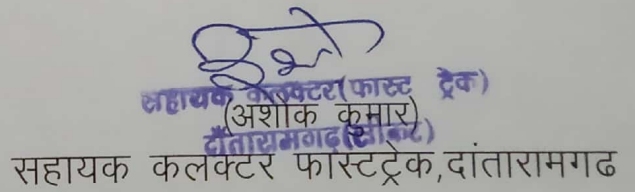 सहायक कलक्टर(फास्ट ट्रेक)
(अशोक कुमार)
दाँतारामगढ़(सीकर)
सहायक कलक्टर फास्टट्रेक,दांतारामगढ